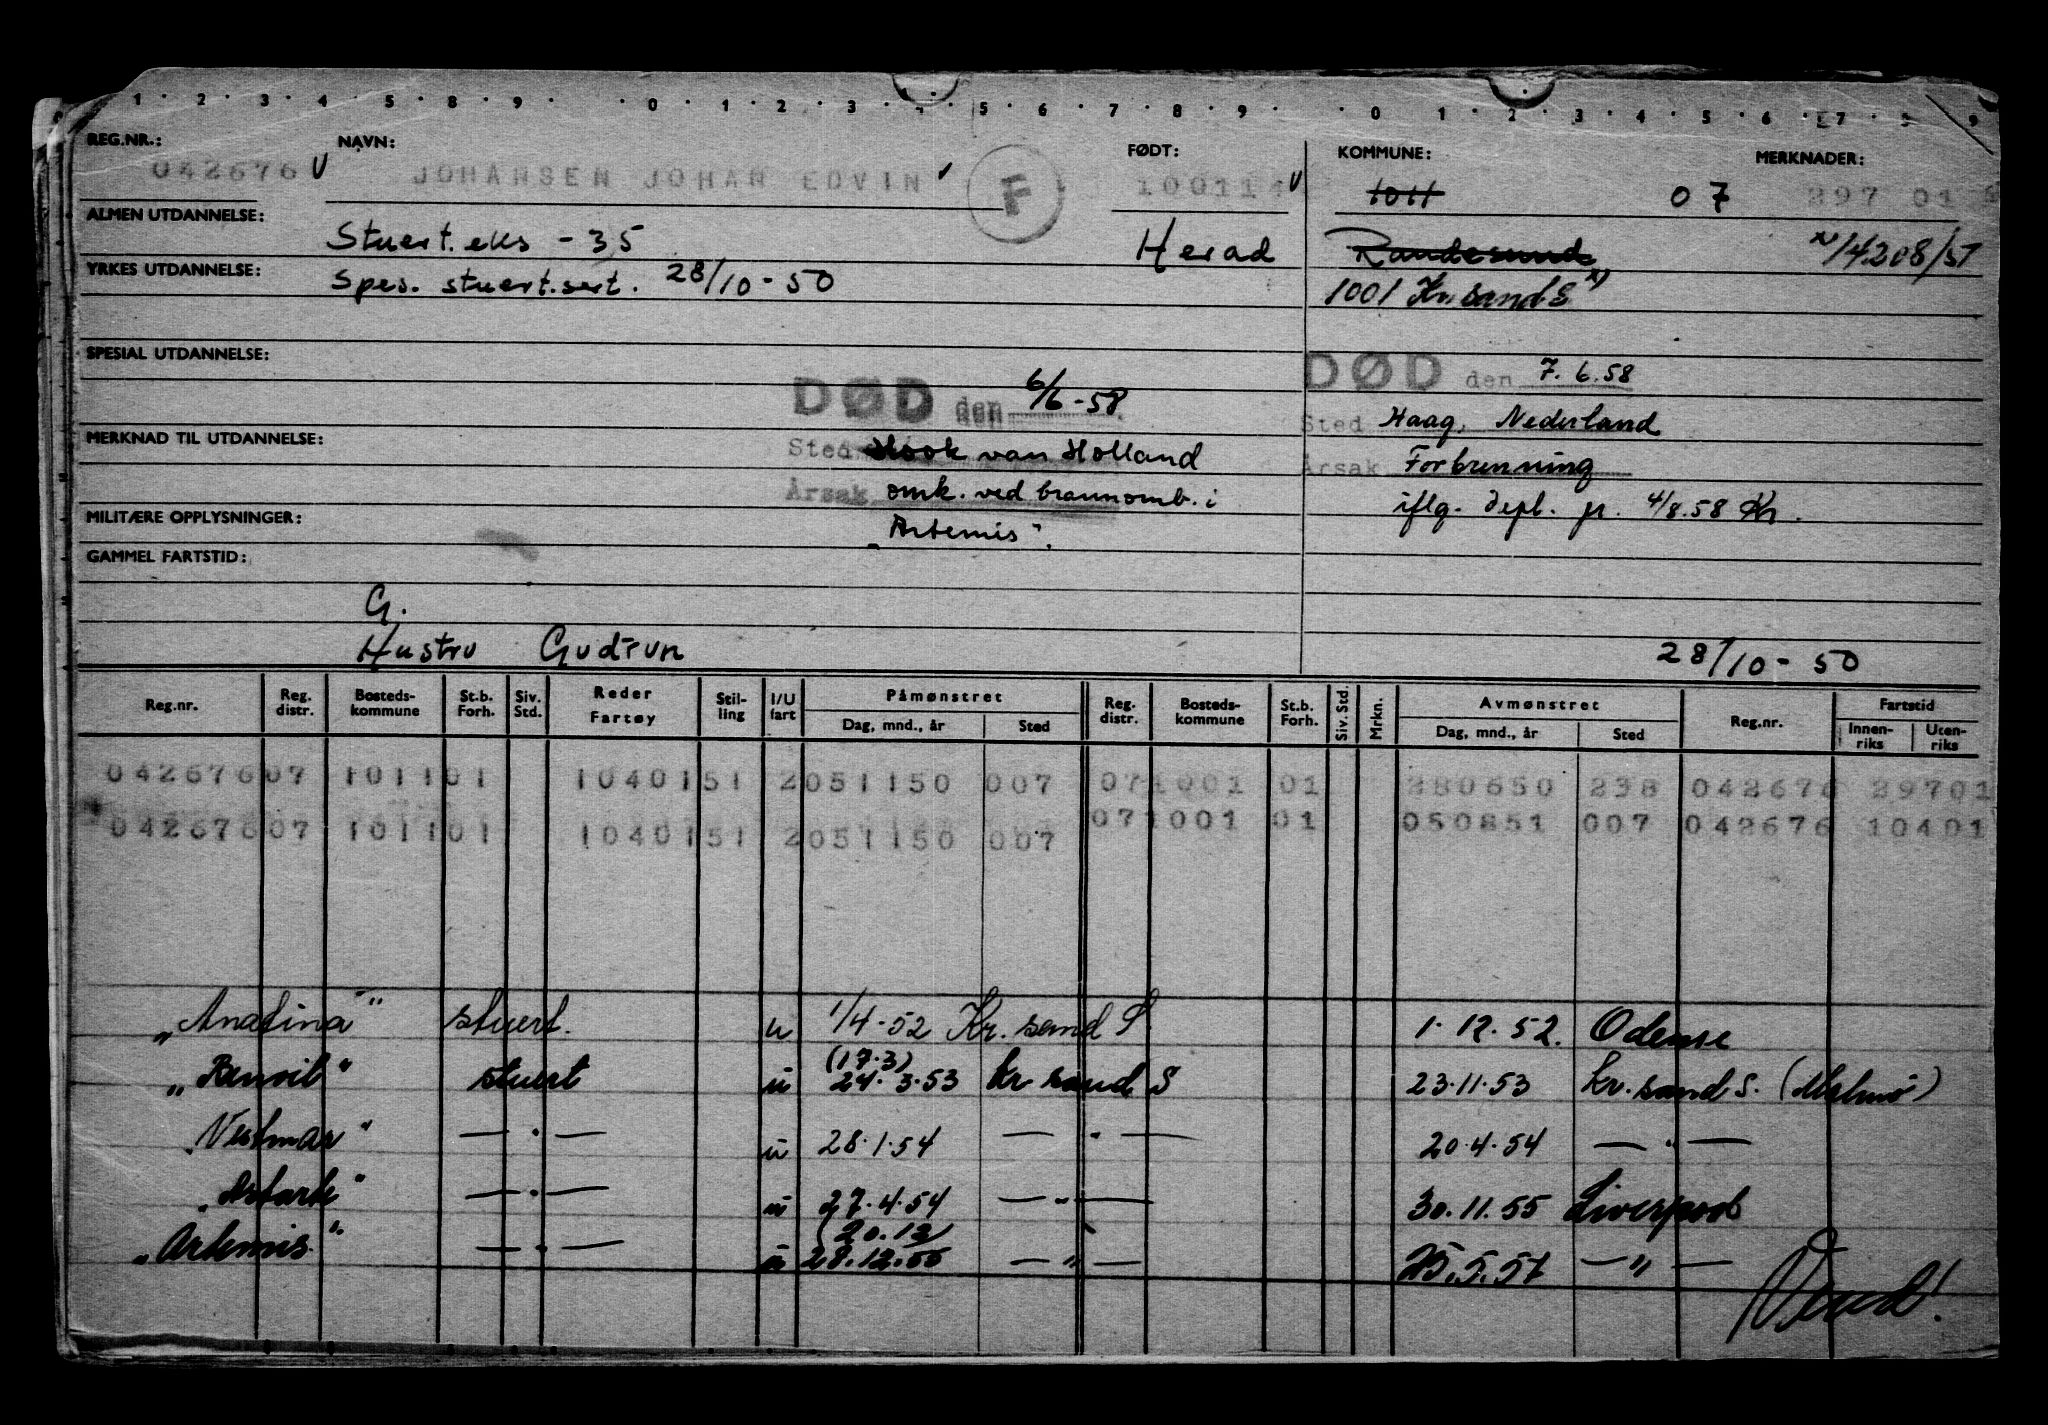 1 · 2 · 3 · 4 · 5 · 8 · 9 · · 0 · 1 · 2 · 3 · 4 · 5 · 6 · 7 · 8 · 9 · · 0 · 1 · 2 · 3 · 4 · 5 · 6 · 7 · 8 · 9
REG.NR.: NAVN: FØDT: KOMMUNE: MERKNADER:
042676 JOHANSEN JOHAN EDVIN F 100114 1011 07 297 01
ALMEN UTDANNELSE: Stuert. eks - 35 Herad Randesund 14208/57
YRKES UTDANNELSE: Spes. stuert.sert. 28/10 - 50 1001 Kr.sand S
SPESIAL UTDANNELSE:
DØD den 6/6 - 58
DØD den 7.6.58
MERKNAD TIL UTDANNELSE:
Sted Hook van Holland
Sted Haag, Nederland
Årsak omk. ved brannomb. i
Årsak Forbrenning
MILITÆRE OPPLYSNINGER:
„Artemis".
iflg. depl. pr. 4/8.58 Kr.
GAMMEL FARTSTID:
G.
Hustru Gudrun 28/10 - 50
Reg.nr. Reg. distr. Bosteds-kommune St.b. Forh. Siv. Std. Reder Fartøy Stil-ling I/U fart Påmønstret Dag, mnd., år Sted Reg. distr. Bosteds-kommune St.b. Forh. Siv. Std. Mrkn. Avmønstret Dag, mnd., år Sted Reg.nr. Fartstid Innen-riks Uten-riks
04267607 101101 1040151 2051150 007 071001 01 280650 238 042676 29701
04267607 101101 1040151 2051150 007 071001 01 050851 007 042676 10401
„Anatina" stuert. u 1/4-52 Kr. sand S. 1.12.52. Odense
(17.3)
„Benoil" stuert u 24.3.53 Kr sand S 23.11.53 Kr. sand S. (Malmö)
„Vestmar" — " — u 28.1.54 — " — 20.4.54 — " —
„Astark" — " — u 27.4.54 — " — 30.11.55 Liverpool
(20.12)
„Artemis" — " — u 28.12.55 — " — 25.5.57 — " —
Vend!